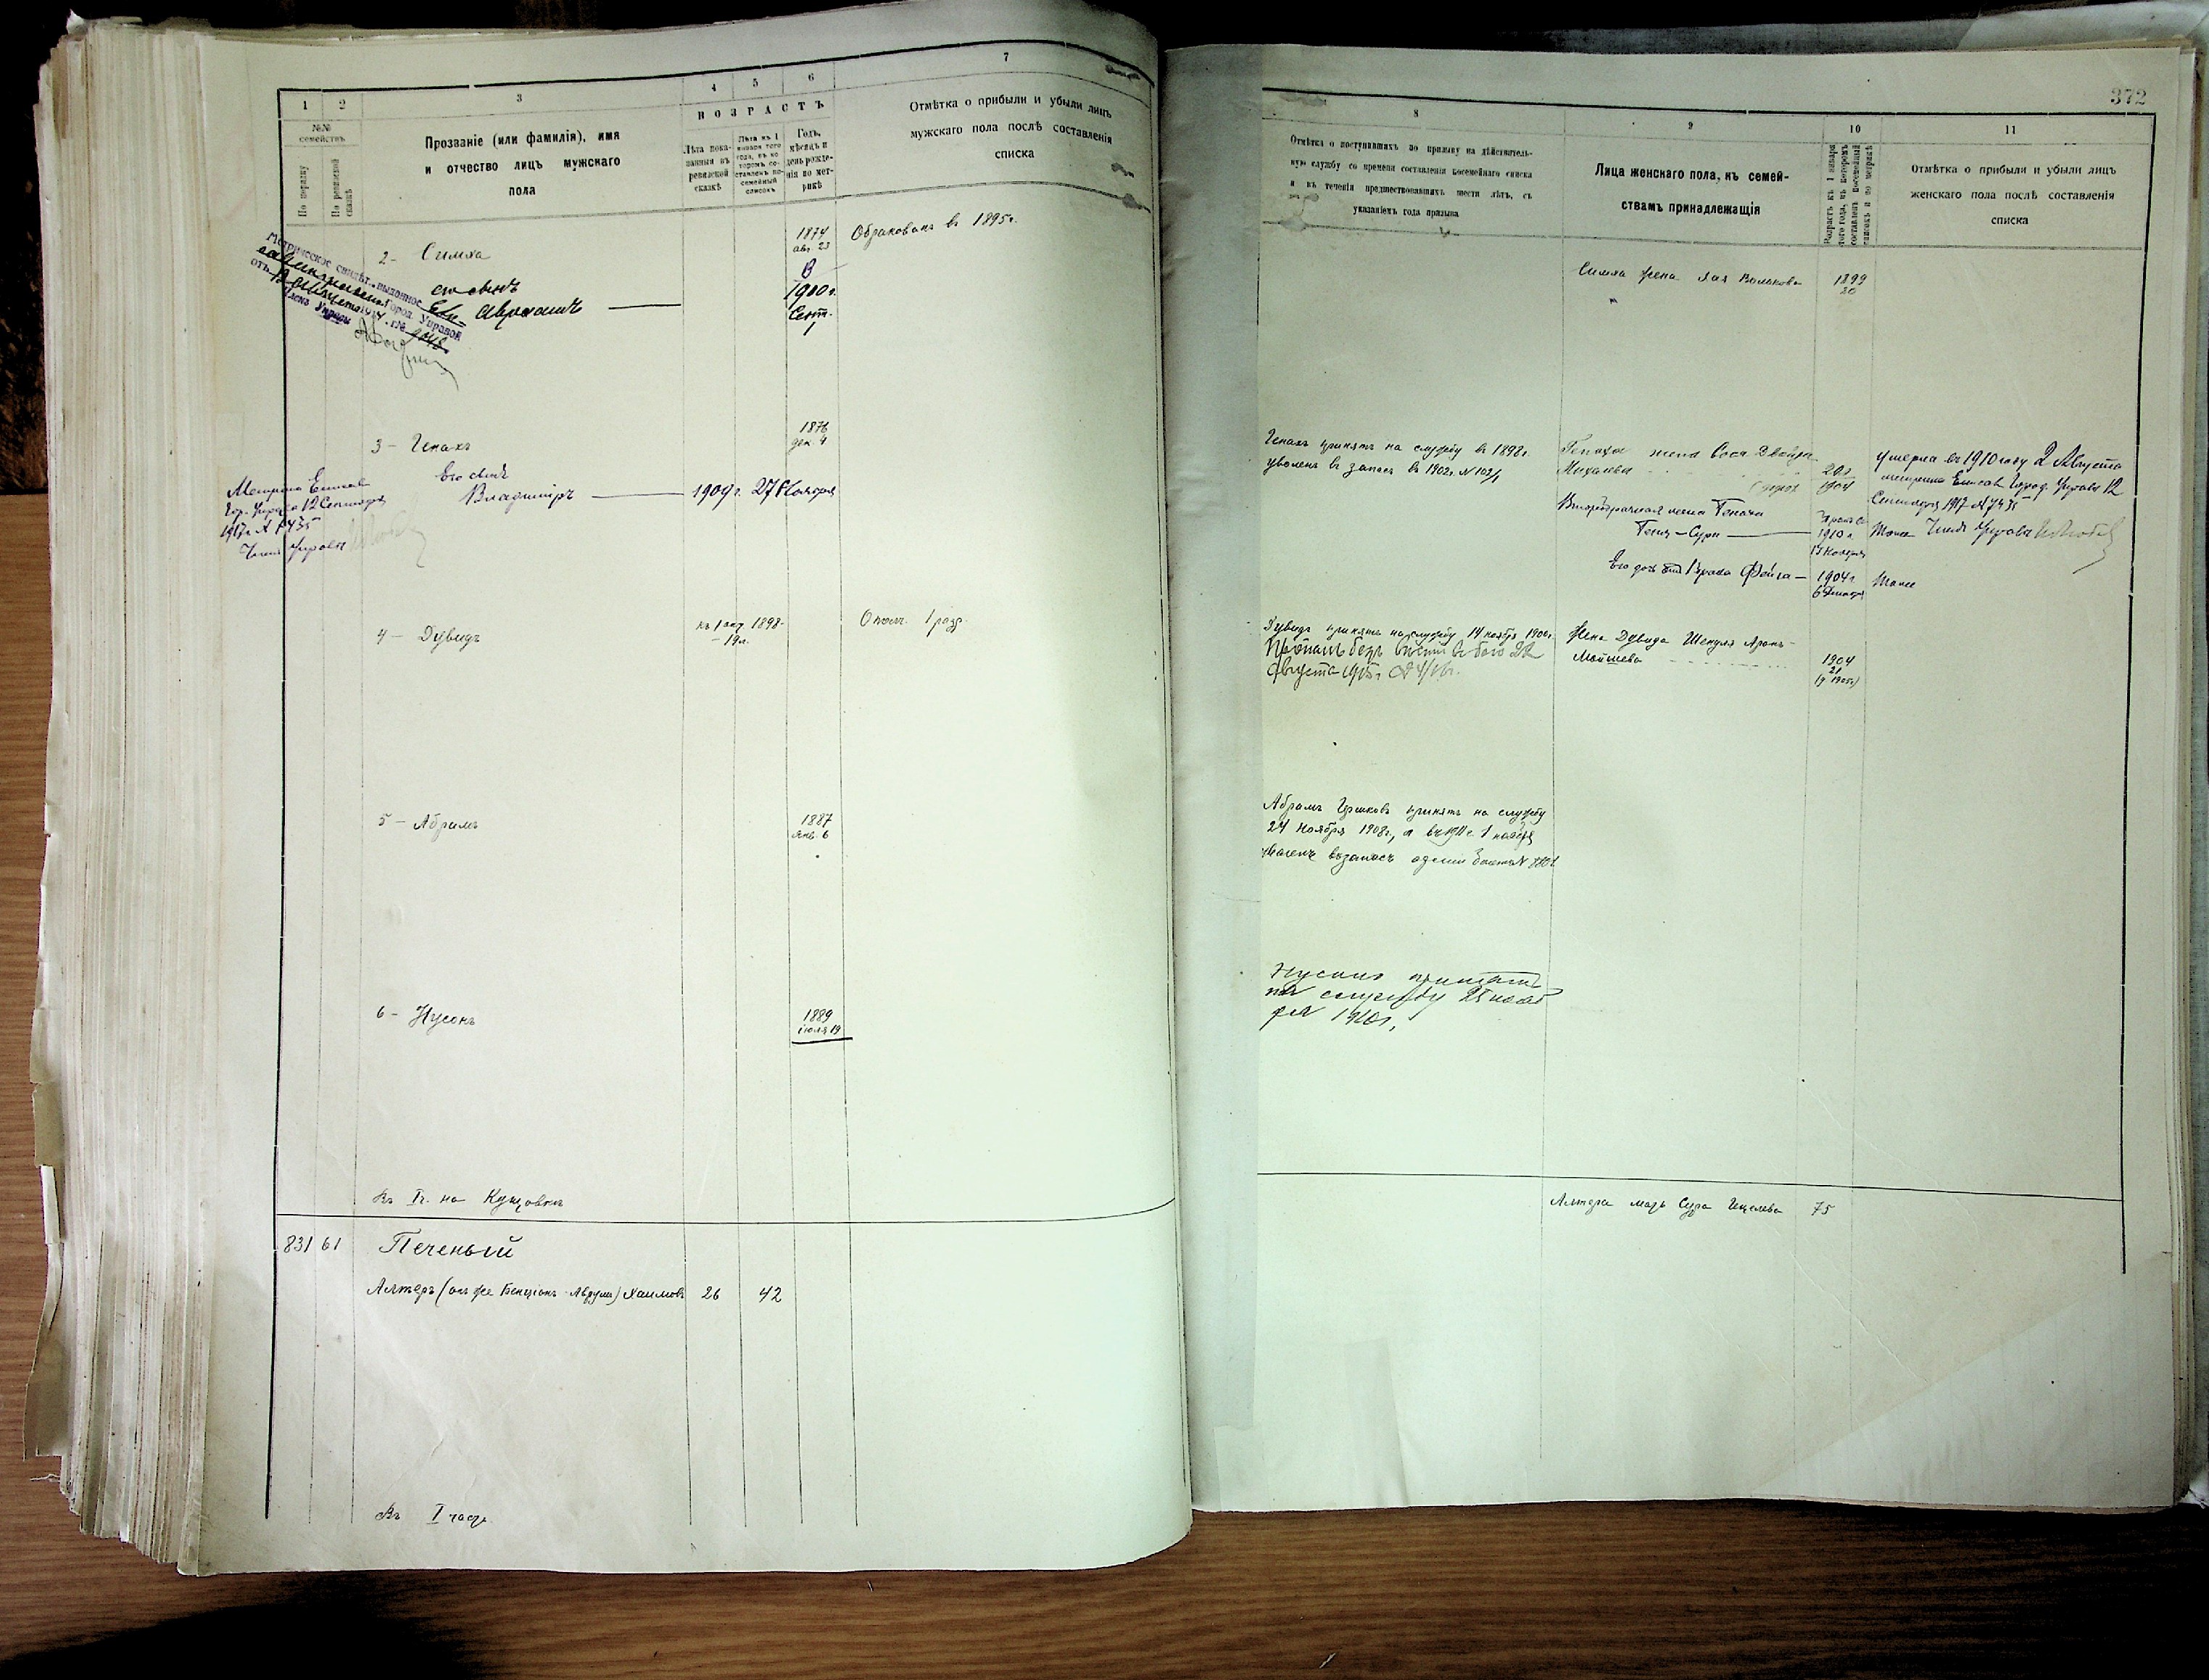 1
2
3
4
5
6
7
№№
семействъ
По порядку
По ревизской
сказкѣ
Прозваніе (или фамилія), имя
и отчество лицъ мужскаго
пола
ВОЗРАСТЪ
Лѣта пока-
занныя въ
ревизской
сказкѣ
Лѣта къ 1
января того
года, въ ко-
торомъ со-
ставленъ по-
семейный
списокъ
Годъ,
мѣсяцъ и
день рожде-
нія по мет-
рикѣ
Отмѣтка о прибыли и убыли лицъ
мужскаго пола послѣ составленія
списка
2 - Симха
1874
авг. 23
Обракованъ въ 1895 г.
Метрическое свидѣт. выданное
Город. Управой
Членъ Управы
его сынъ
Авраамъ
1900 г.
Сент.
1
3 - Генахъ
1876
дек. 4
Его сынъ
Владиміръ
1909 г. 27 Ноября
Метрика Елисав.
Гор. Управы 12 Сентября
1917 г. № 7435
Членъ Управы
4 - Дувидъ
къ 1 окт. 1898
- 19 л.
Ополч. 1 разр.
5 - Абрамъ
1887
янв. 6
6 - Нусонъ
1889
іюля 19
Въ I ч. на Кущовкѣ
831 61 Печеный
Алтеръ (онъ же Бенціонъ-Аврумъ) Хаимовъ 26 42
Въ I части
372
8
9
10
11
Отмѣтка о поступившихъ по призыву на дѣйствитель-
ную службу со времени составленія посемейнаго списка
и въ теченіи предшествовавшихъ шести лѣтъ, съ
указаніемъ года призыва
Лица женскаго пола, къ семей-
ствамъ принадлежащія
Возрастъ къ 1 января
того года, въ которомъ
составленъ посемейный
списокъ и по метрикѣ
Отмѣтка о прибыли и убыли лицъ
женскаго пола послѣ составленія
списка
Симха жена Хая Волькова
1899
20
Генахъ принятъ на службу въ 1898 г.
уволенъ въ запасъ въ 1902 г. № 102/1
Генаха жена Бося Двойра
Михелева
20 л
1904
умерла въ 1910 году 2 Августа
метрика Елисав. Город. Управы 12
Сентября 1917 № 7435
Второбрачная жена Генаха
Геня-Сура
1910 г.
17 Ноября
Тоже Членъ Управы
Его дочь Фейга
1904 г.
6 Января
Тоже
Дувидъ принятъ на службу 14 ноября 1900 г.
Пропалъ безъ вести въ бою 22
Августа 1915 г.
Жена Дувида Шендля Аронъ-
Мойшева
1904
21
(ч 1905)
Абрамъ Гершковъ принятъ на службу
24 Ноября 1908 г., а въ 1911 г. 1 ноября
уволенъ въ запасъ арміи
Нусонъ принятъ
на службу 25 нояб
ря 1910 г.
Алтера мать Сура Гецелева 75